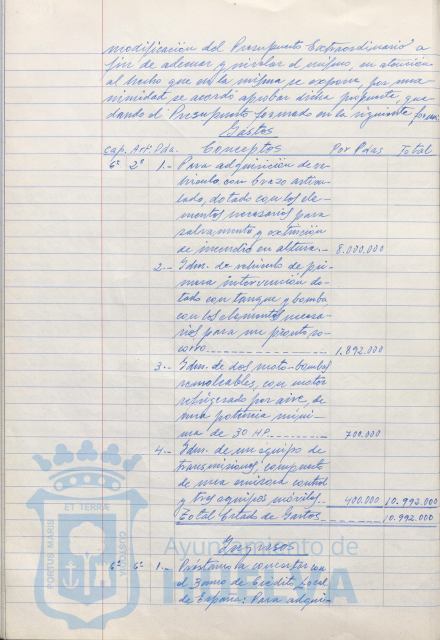 modificación del Presupuesto Extraordinario a
fin de ademar y nivelar el mismo, en atención
al hecho que en la misma se expone, por una-
nimidad se acordó aprobar dicha propuesta, que-
dando el Presupuesto formado en la siguiente forma:
Gastos
Cap. Art. Pda. Conceptos Por Pdas Total
6º 2º 1.- Para adquisición de ve-
hículo, con brazo articu-
lado, dotado con los ele-
mentos necesarios para
salvamento y extinción
de incendio en altura.- 8.000.000
2.- Idm. de vehículo de pri-
mera intervención do-
tado con tanque y bomba
con los elementos necesa-
rios para un pronto so-
corro 1.892.000
3.- Idm. de dos moto-bombas
remolcables, con motor
refrigerado por aire, de
una potencia míni-
ma de 30 HP. 700.000
4.- Idm. de un equipo de
transmisiones, compuesto
de una emisora control
y tres equipos móviles. 400.000 10.992.000
Total Estado de Gastos 10.992.000
Ingresos
6º 6º 1.- Préstamo a concertar con
el Banco de Crédito Local
de España: Para adqui-
PORTUS MARIS
ET TERRÆ
CUSTODIA
Ayuntamiento de
HUELVA